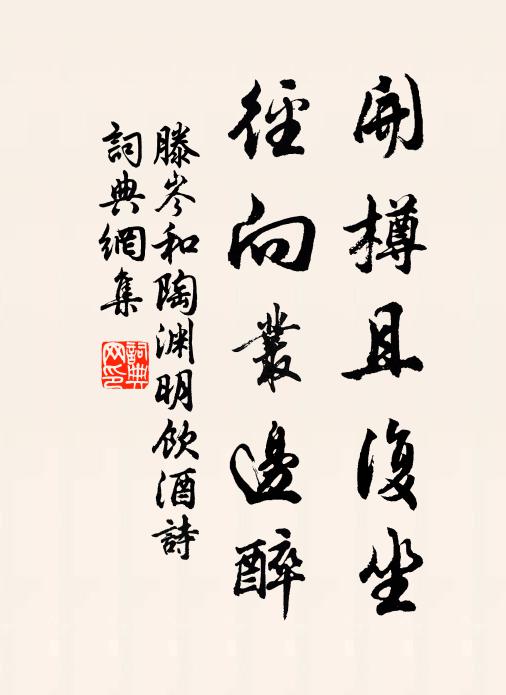 開樽且復坐
徑向叢邊醉
滕岑和陶淵明飲酒詩
詞典網集
詞典網印